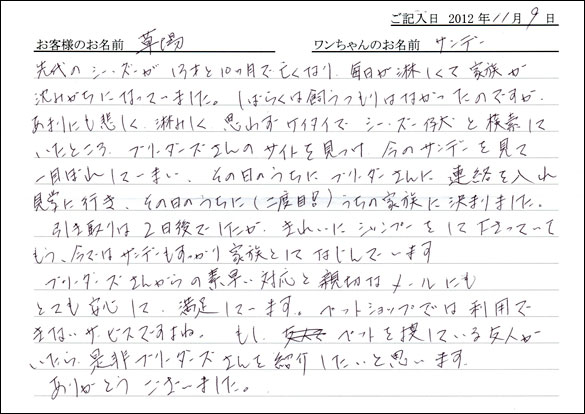 ご記入日 2012年11月9日
お客様のお名前 草場 ワンちゃんのお名前 サンデー
先代のシーズーが13才と10ヶ月で亡くなり、毎日が淋しくて家族が
沈みがちになっていました。しばらくは飼うつもりはなかったのですが、
あまりにも悲しく、淋しく、思わずケイタイでシーズー仔犬と検索して
いたところ、ブリーダーズさんのサイトを見つけ、今のサンデーを見て
一目ぼれしてしまい、その日のうちに、ブリーダーさんに、連絡を入れ
見学に行き、その日のうちに(二度目)うちの家族に決まりました。
引き取りは2日後でしたが、きれいにシャンプーをして下さっていて
もう、今ではサンデーもすっかり家族としてなじんでいます
ブリーダーズさんからの素早い対応と親切なメールにも
とても安心して、満足しています。ペットショップでは利用で
きないサービスですよね。もし、ペットを探している友人が
いたら、是非ブリーダーズさんを紹介したいと思います。
ありがとうございました。